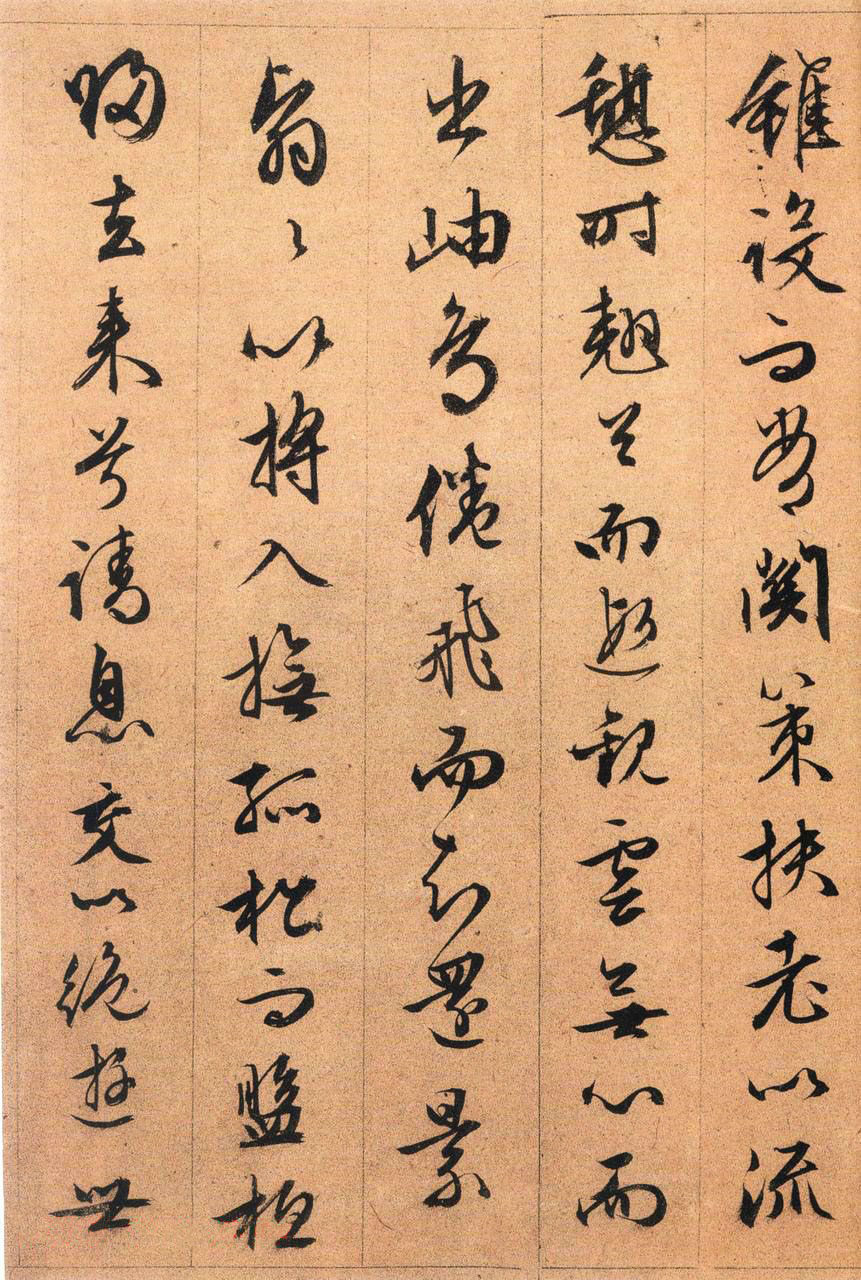 雖設而常關策扶老以流
憩時翹首而遐觀雲無心而
出岫鳥倦飛而知還景
翳〻以將入撫孤松而盤桓
歸去来兮請息交以絕遊世